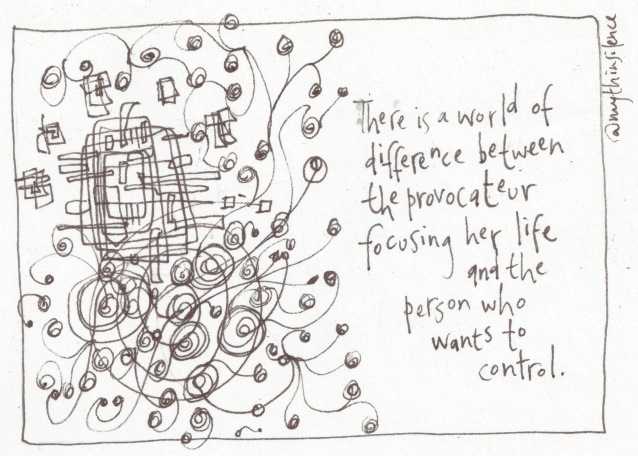 There is a world of
difference between
the provocateur
focusing her life
and the
person who
wants to
control.
@mythinsilence